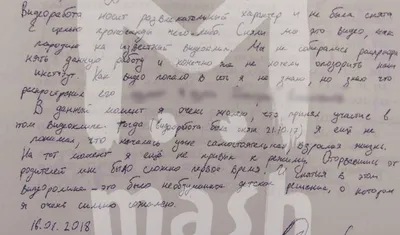 Видеоработа носит развлекательный характер и не была снята
с целью пропаганды чего либо. Сняли мы это видео, как
пародию на известный видеоклип. Мы не собирались распростра-
нять данную работу и конечно же не хотели опозорить наш
институт. Как видео попало в сеть я не знаю, но знаю что
распространил его
В данный момент я очень жалею, что принял участие в
этом видеоклипе. Тогда (видеоработа была снята 21.10.17) я ещё не
понимал, что началась уже самостоятельная взрослая жизнь.
На тот момент я ещё не привык к режиму. Оторвавшись от
родителей мне было сложно первое время. Сняться в этом
видеоролике - это было необдуманное детское решение, о котором
я очень сильно сожалею.
16.01.2018
mash